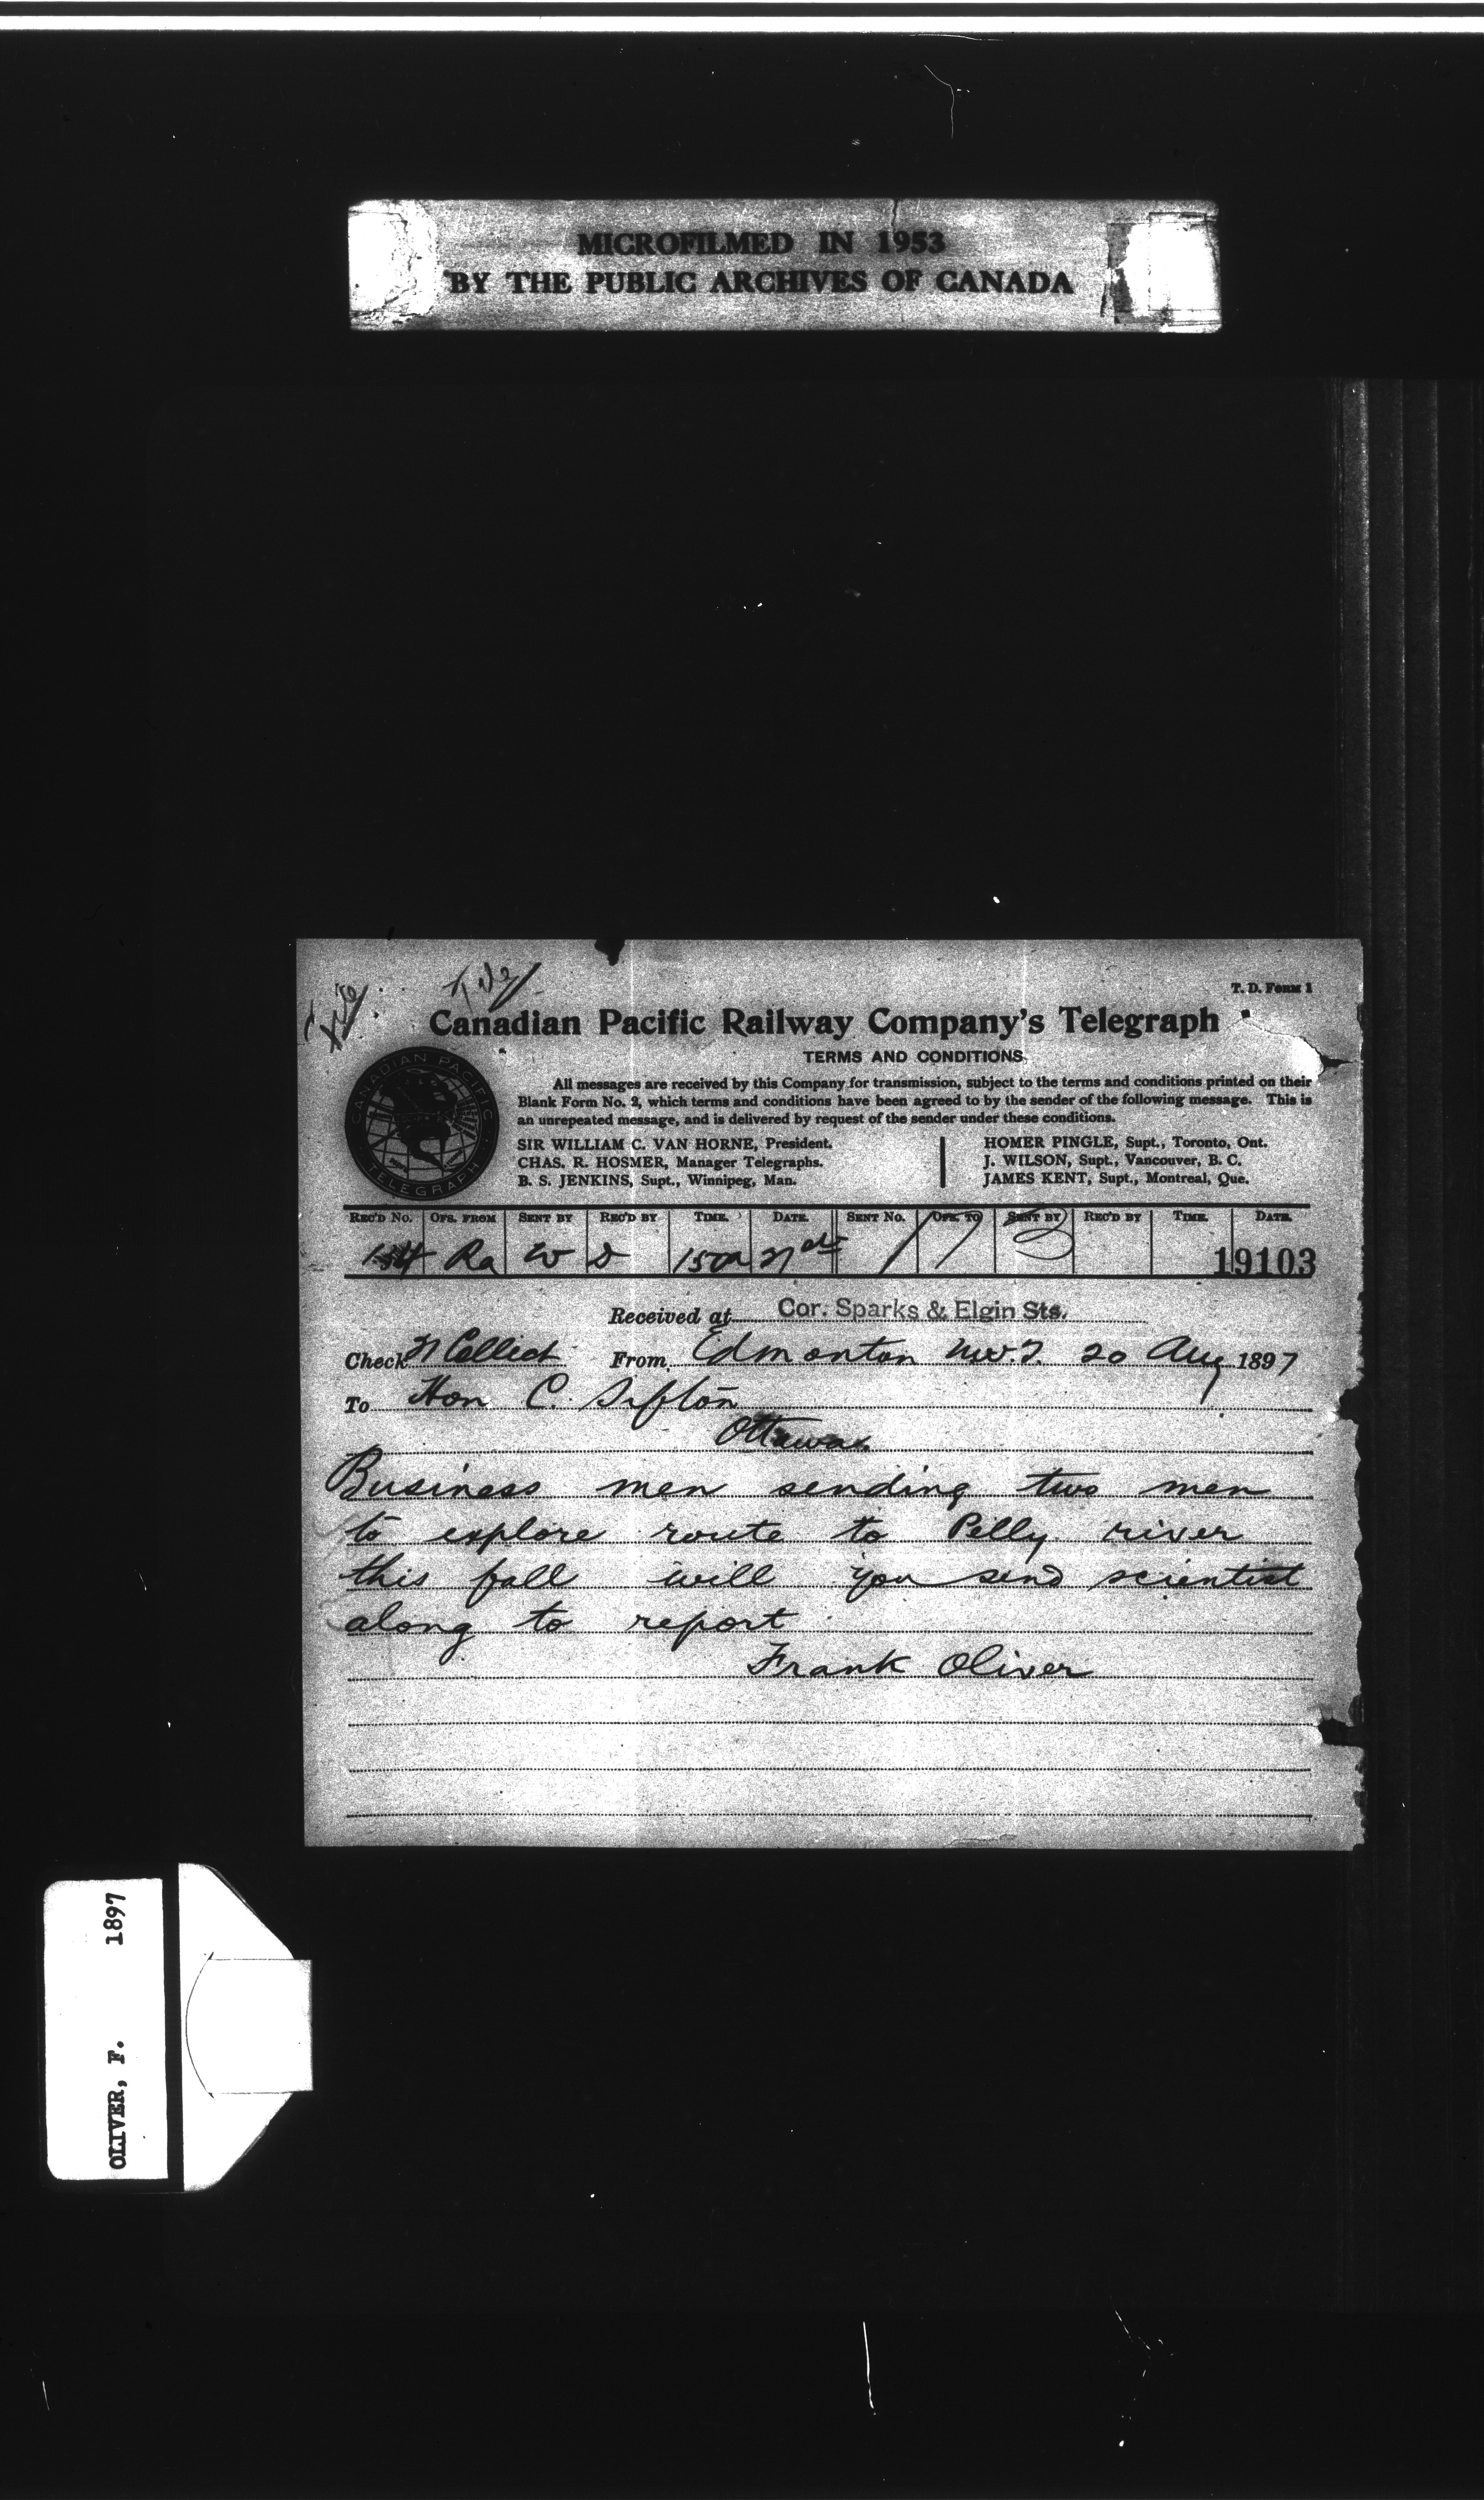 MICROFILMED IN 1953
BY THE PUBLIC ARCHIVES OF CANADA
T. D. Form 1
Canadian Pacific Railway Company's Telegraph
TERMS AND CONDITIONS.
All messages are received by this Company for transmission, subject to the terms and conditions printed on their
Blank Form No. 2, which terms and conditions have been agreed to by the sender of the following message. This is
an unrepeated message, and is delivered by request of the sender under these conditions.
SIR WILLIAM C. VAN HORNE, President.
CHAS. R. HOSMER, Manager Telegraphs.
B. S. JENKINS, Supt., Winnipeg, Man.
HOMER PINGLE, Supt., Toronto, Ont.
J. WILSON, Supt., Vancouver, B. C.
JAMES KENT, Supt., Montreal, Que.
CANADIAN PACIFIC
TELEGRAPH
REC'D NO. OFS. FROM SENT BY REC'D BY TIME. DATE. SENT NO. OFS. TO SENT BY REC'D BY TIME. DATE.
Ra W D
19103
Received at Cor. Sparks & Elgin Sts.
Check 21 Collect From Edmonton N.W.T. 20 Aug 1897
To Hon C. Sifton
Ottawa
Business men sending two men
to explore route to Pelly river
this fall will you send scientist
along to report
Frank Oliver
OLIVER, F. 1897